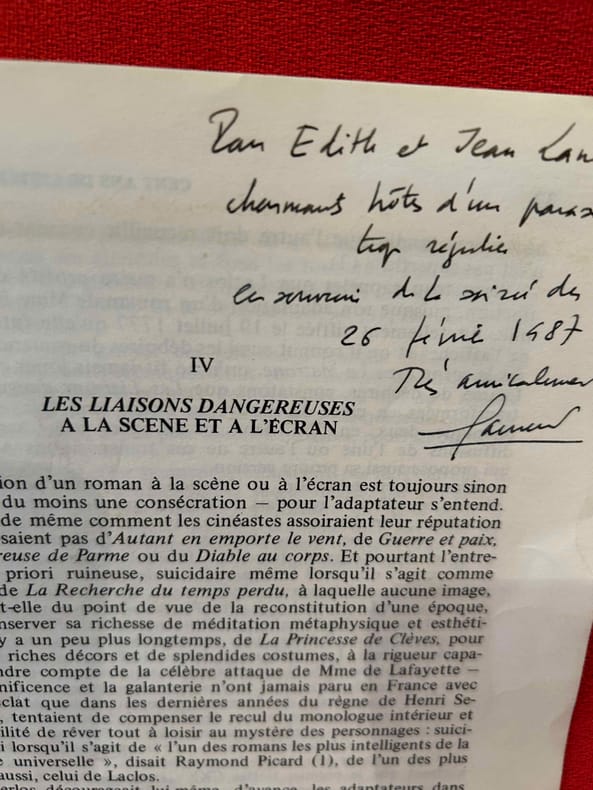 Pour Edith et Jean
charmants hôtes d'un
trop régulier
en souvenir de la soirée du
26 février 1987
Très amicalement
IV
LES LIAISONS DANGEREUSES
A LA SCENE ET A L'ÉCRAN
tion d'un roman à la scène ou à l'écran est toujours sinon
du moins une consécration — pour l'adaptateur s'entend.
de même comment les cinéastes assoiraient leur réputation
saient pas d'Autant en emporte le vent, de Guerre et paix,
reuse de Parme ou du Diable au corps. Et pourtant l'entre-
priori ruineuse, suicidaire même lorsqu'il s'agit comme
de La Recherche du temps perdu, à laquelle aucune image,
t-elle du point de vue de la reconstitution d'une époque,
nserver sa richesse de méditation métaphysique et esthéti-
y a un peu plus longtemps, de La Princesse de Clèves, pour
riches décors et de splendides costumes, à la rigueur capa-
ndre compte de la célèbre attaque de Mme de Lafayette —
nificence et la galanterie n'ont jamais paru en France avec
clat que dans les dernières années du règne de Henri Se-
, tentaient de compenser le recul du monologue intérieur et
ilité de rêver tout à loisir au mystère des personnages : suici-
i lorsqu'il s'agit de « l'un des romans les plus intelligents de la
e universelle », disait Raymond Picard (1), de l'un des plus
aussi, celui de Laclos.
clos décourageait lui-même, d'avance, les adaptateurs dans